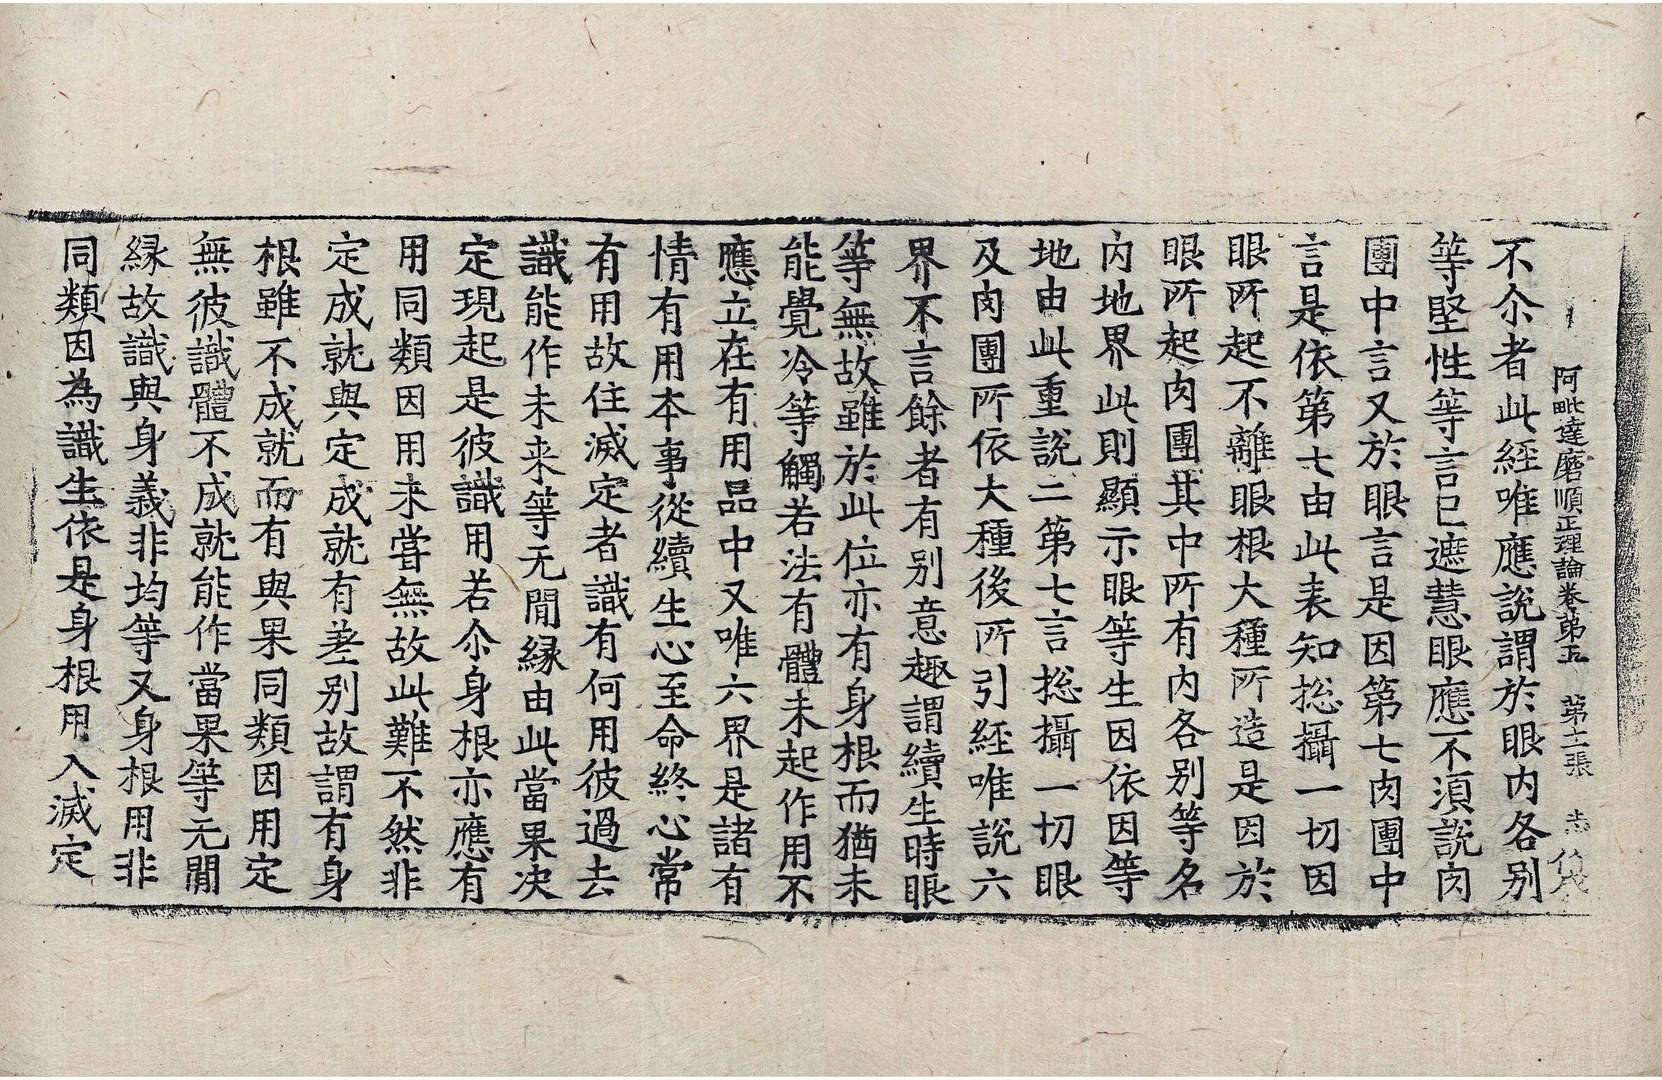 阿毗達磨順正理論卷第五 第十二張 志
不尒者此經唯應說謂於眼內各別
等堅性等言已遮慧眼應不湏說肉
團中言又於眼言是因第七肉團中
言是依第七由此表知捴攝一切因
眼所起不離眼根大種所造是因於
眼所起肉團其中所有內各別等名
內地界此則顯示眼等生因依因等
地由此重說二第七言捴攝一切眼
及肉團所依大種後所引經唯說六
界不言餘者有別意趣謂續生時眼
等無故雖於此位亦有身根而猶未
能覺冷等觸若法有體未起作用不
應立在有用品中又唯六界是諸有
情有用本事從續生心至命終心常
有用故住滅定者識有何用彼過去
識能作未来等无閒緣由此當果决
定現起是彼識用若尒身根亦應有
用同類因用未嘗無故此難不然非
定成就與定成就有差別故謂有身
根雖不成就而有與果同類因用定
無彼識體不成就能作當果等无閒
緣故識與身義非均等又身根用非
同類因為識生依是身根用入滅定